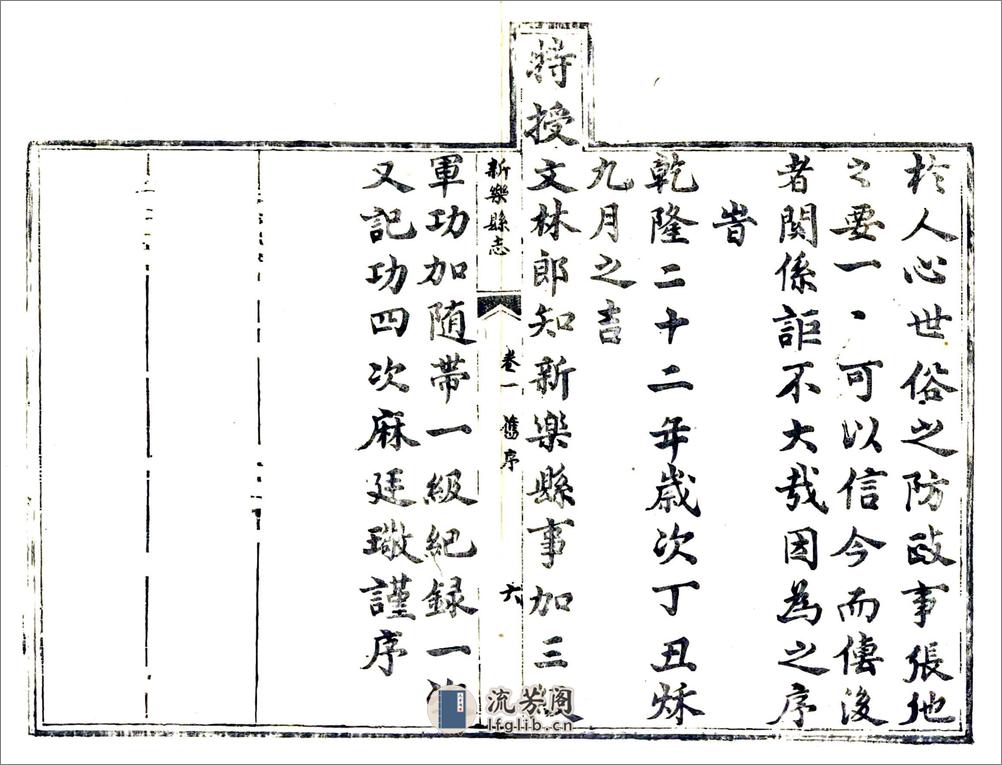 於人心世俗之防政事張弛
之要一、可以信今而傳後
者関係詎不大哉因為之序
旹
乾隆二十二年歲次丁丑秌
九月之吉
特授文林郎知新樂縣事加三級
新樂縣志 卷一 舊序 六
軍功加随帶一級紀録一次
又記功四次麻廷璥謹序
流芳阁
lfglib.cn